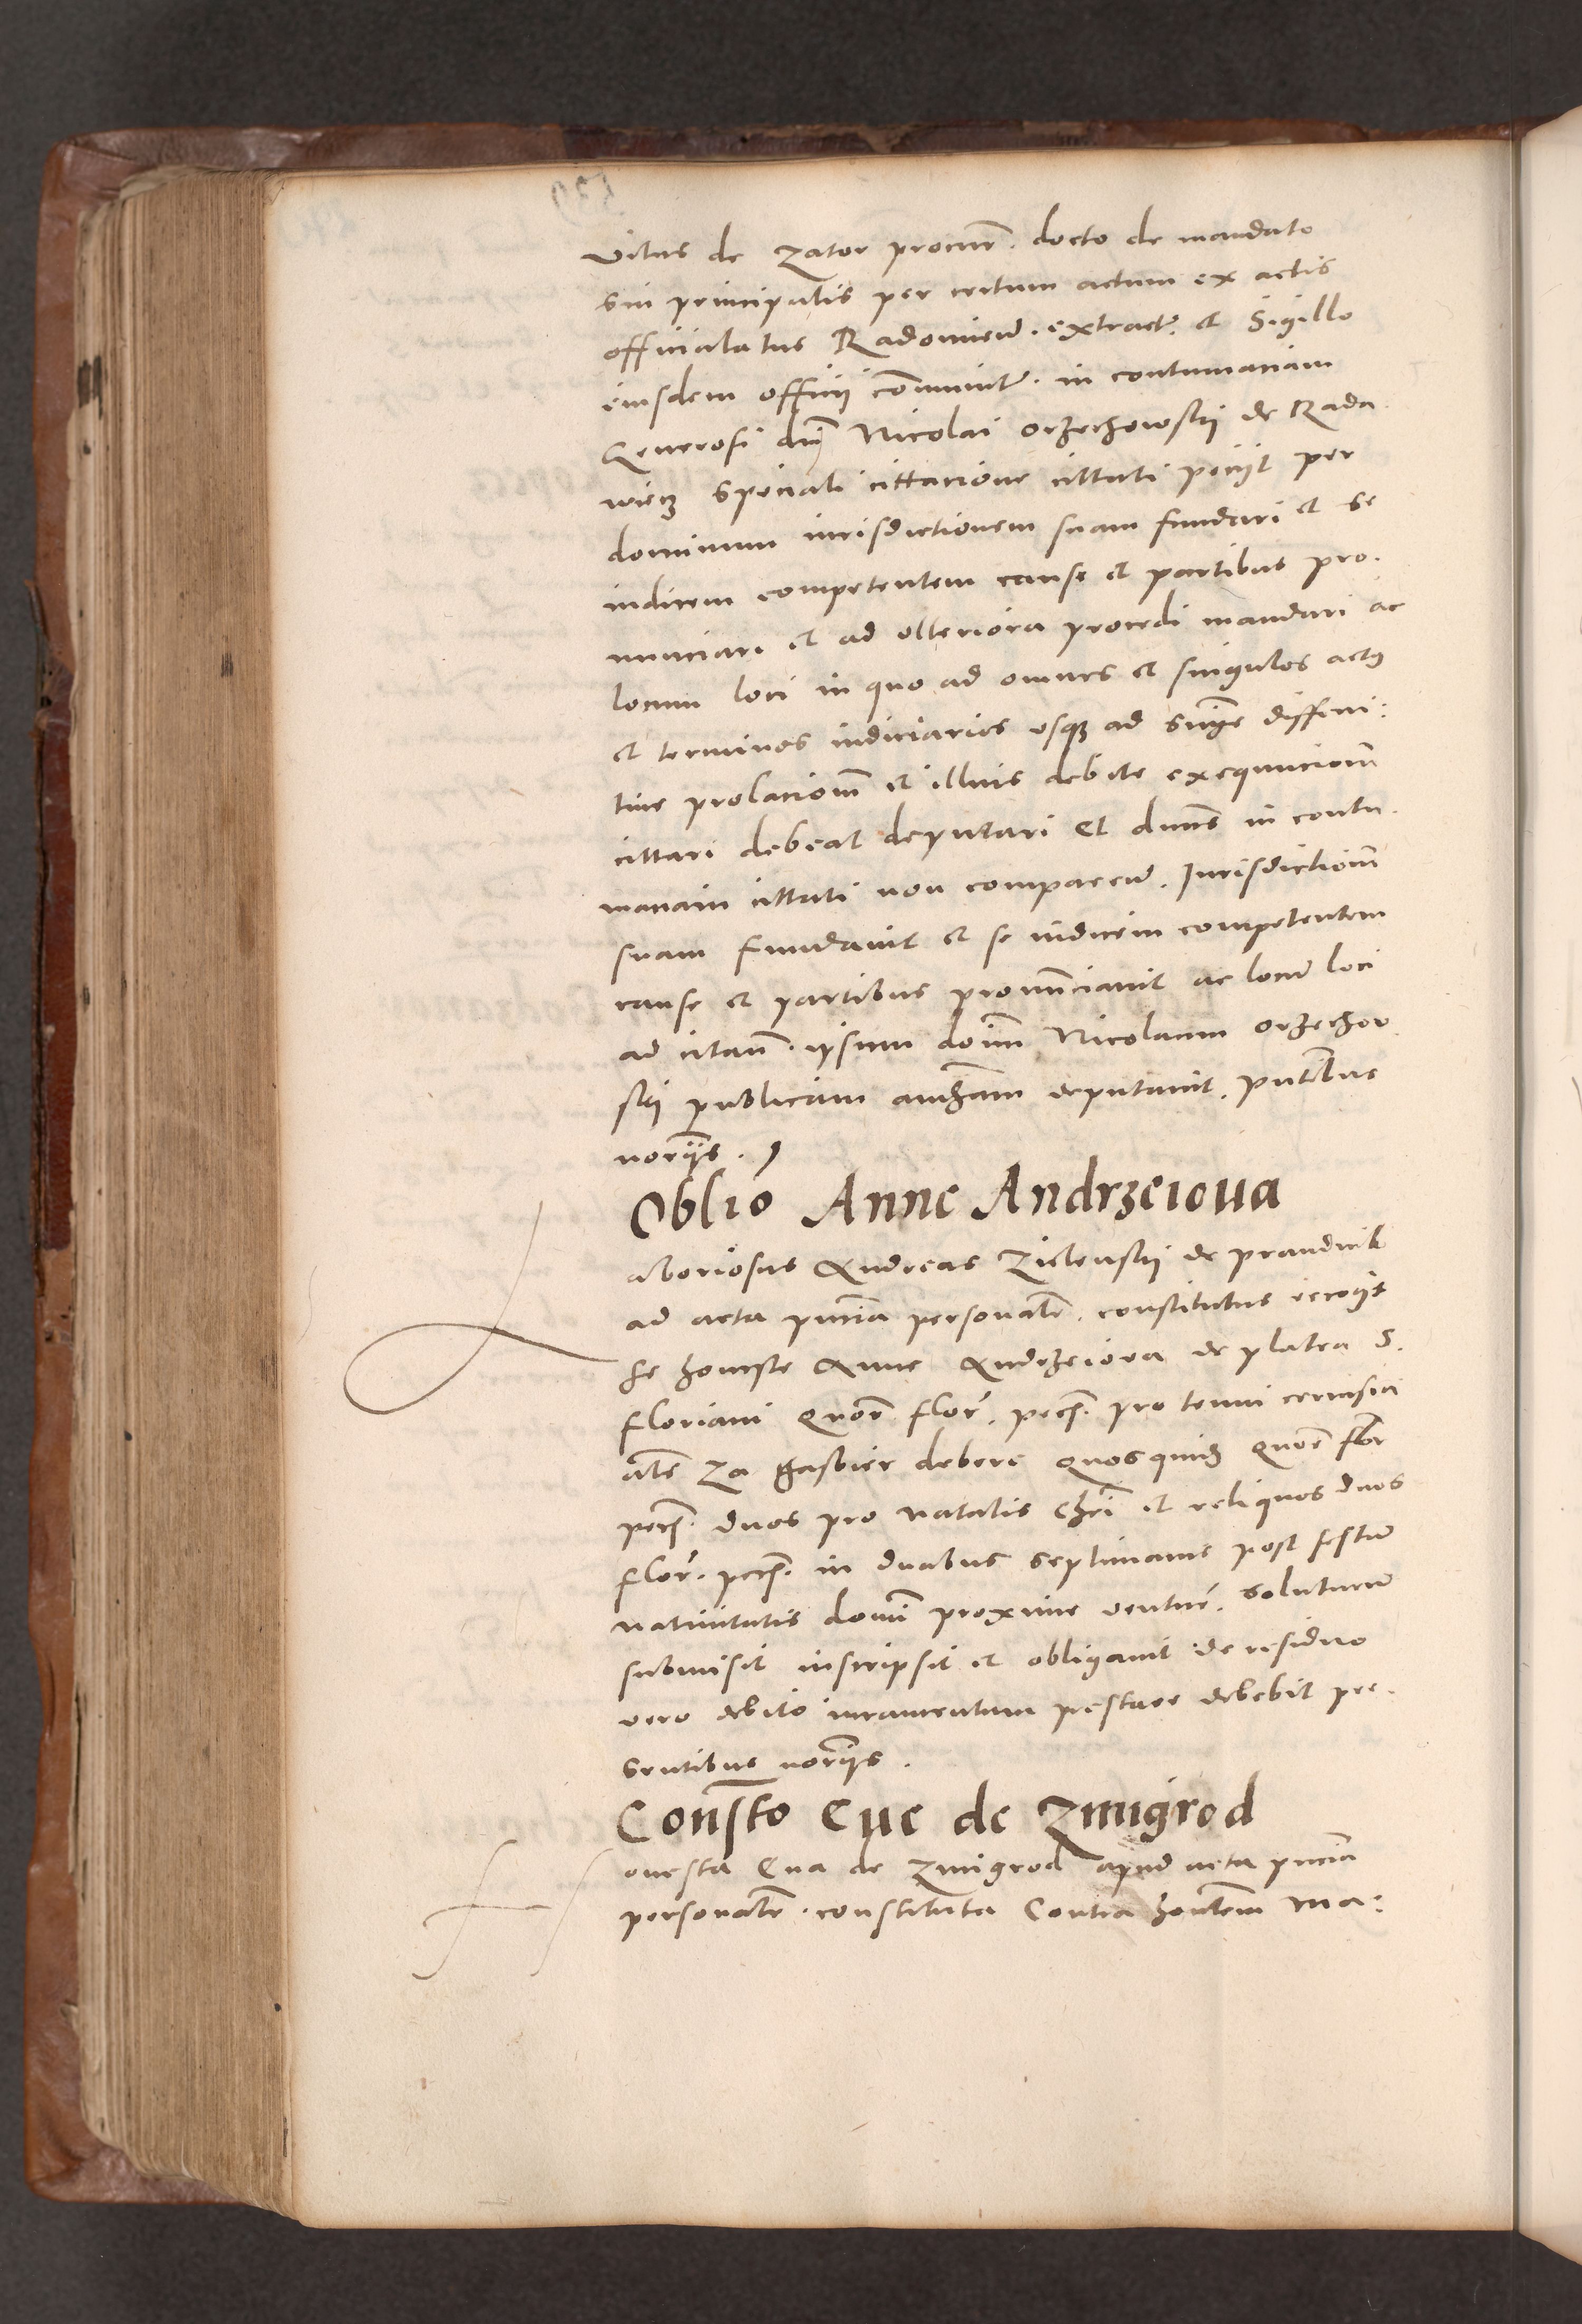 Vitus de Zator procur. docto de mandato
sui principalis per certum actum ex actis
officialatus Radomien. extract. et Sigillo
eiusdem officii communit. in contumaciam
Generosi dni Nicolai Orzechowskij de Rada
wiecz speciali cittacione cittati peciit per
dominum iurisdictionem suam fundari et se
iudicem competentem cause et partibus pro-
nunciari et ad vlteriora procedi mandari ac
locum loci in quo ad omnes et singulos actus
et terminos iudiciarios vsque ad snie diffini:
tiue prolacionem et illius debite exequucionem
cittari debeat deputari Et dnus in contu-
maciam cittati non comparen. Iurisdictionem
suam fundauit et se iudicem competentem
cause et partibus pronunciauit ac locum loci
ad citan. ipsum doim Nicolaum Orzechow
skij publicam audiam deputauit. pntibus
noriis.
Oblio Anne Andrzeioua
Laboriosus Andreas Zielenskij de prandnik
ad acta pncia personalr. constitutus recogt
se honeste Anne Andrzeiova de platea S.
Floriani quor flor. pech. pro tenui ceruisia
als za debere quos quidz quor flor
pech. duos pro natalis Chri et reliquos duos
flor. pech. in duabus septimanis post festum
natiuitatis domi proxime ventur. soluturum
submisit inscripsit et obligauit de residuo
vero debito iuramentum prestare debebit pre-
sentibus noriis.
Consto Eue de Zmigrod
Honesta Eua de Zmigrod apud acta pncia
personalr. constituta Contra hontem Ma: